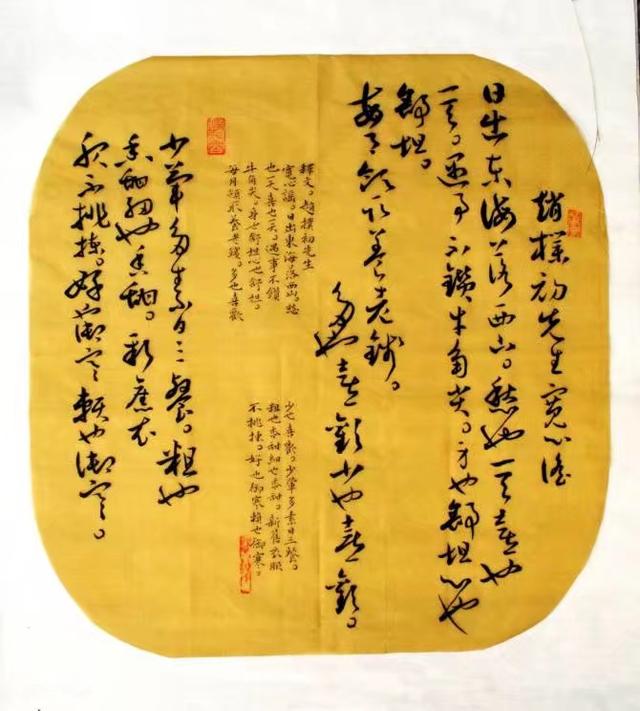 趙樸初先生寬心谣
日出东海落西山。愁也一天喜也
一天。遇事不鑽牛角尖。身也舒坦心也
舒坦。
每月领取養老钱。
多也喜歡少也喜歡。
釋文。趙撲初先生
寬心謡。日出東海落西山。愁
也一天喜也一天。遇事不鑽
牛角尖。身也舒坦心也舒坦。
每月領取養老錢。多也喜歡
少也喜歡。少葷多素日三餐。
粗也香甜細也香甜。新舊衣服
不挑揀。好也御寒賴也御寒。
少荤多素日三餐。粗也
香甜细也香甜。新舊衣
服不挑揀。好也御寒赖也御寒。